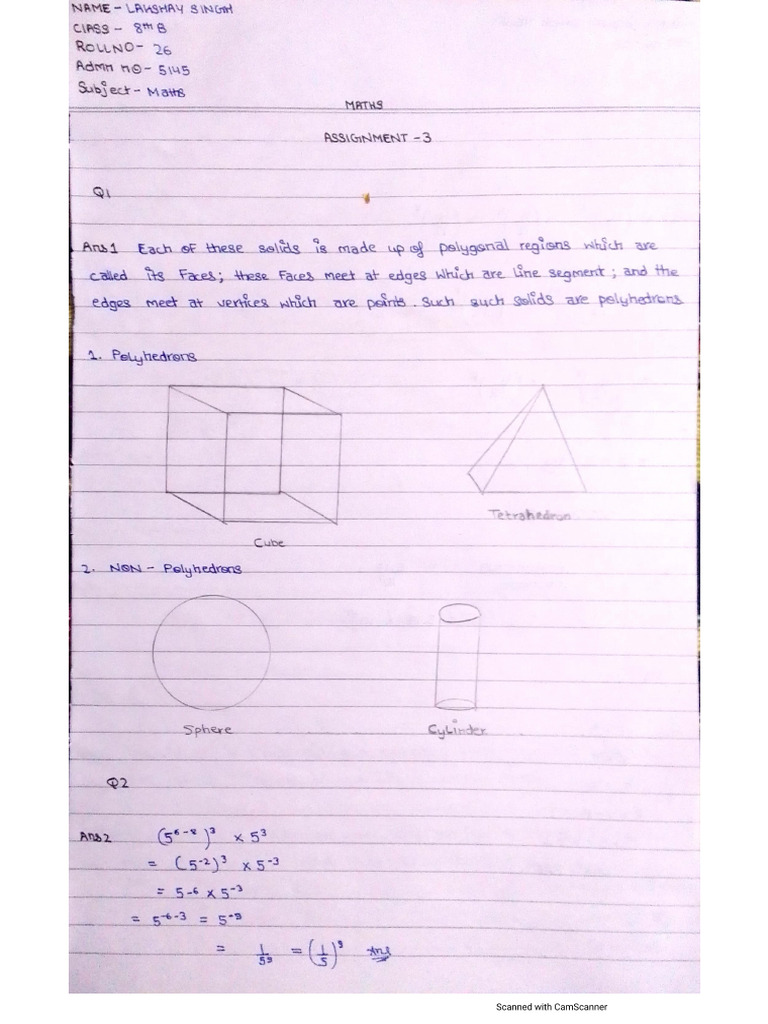 NAME - LAKSHAY SINGH
CLASS - 8th B
ROLLNO - 26
Admn no - 5145
Subject - Maths
MATHS
ASSIGNMENT - 3
Q1
Ans1 Each of these solids is made up of polygonal regions which are
called its Faces; these Faces meet at edges which are line segment; and the
edges meet at vertices which are points. Such such solids are polyhedrons
1. Polyhedrons
Cube
Tetrahedron
2. NON - Polyhedrons
Sphere
Cylinder
Q2
Ans2 (5⁶⁻⁸)³ × 5³
= (5⁻²)³ × 5⁻³
= 5-6 × 5⁻³
= 5⁻⁶⁻³ = 5⁻⁹
= 1/5⁹ = (1/5)⁹ Ans
Scanned with CamScanner